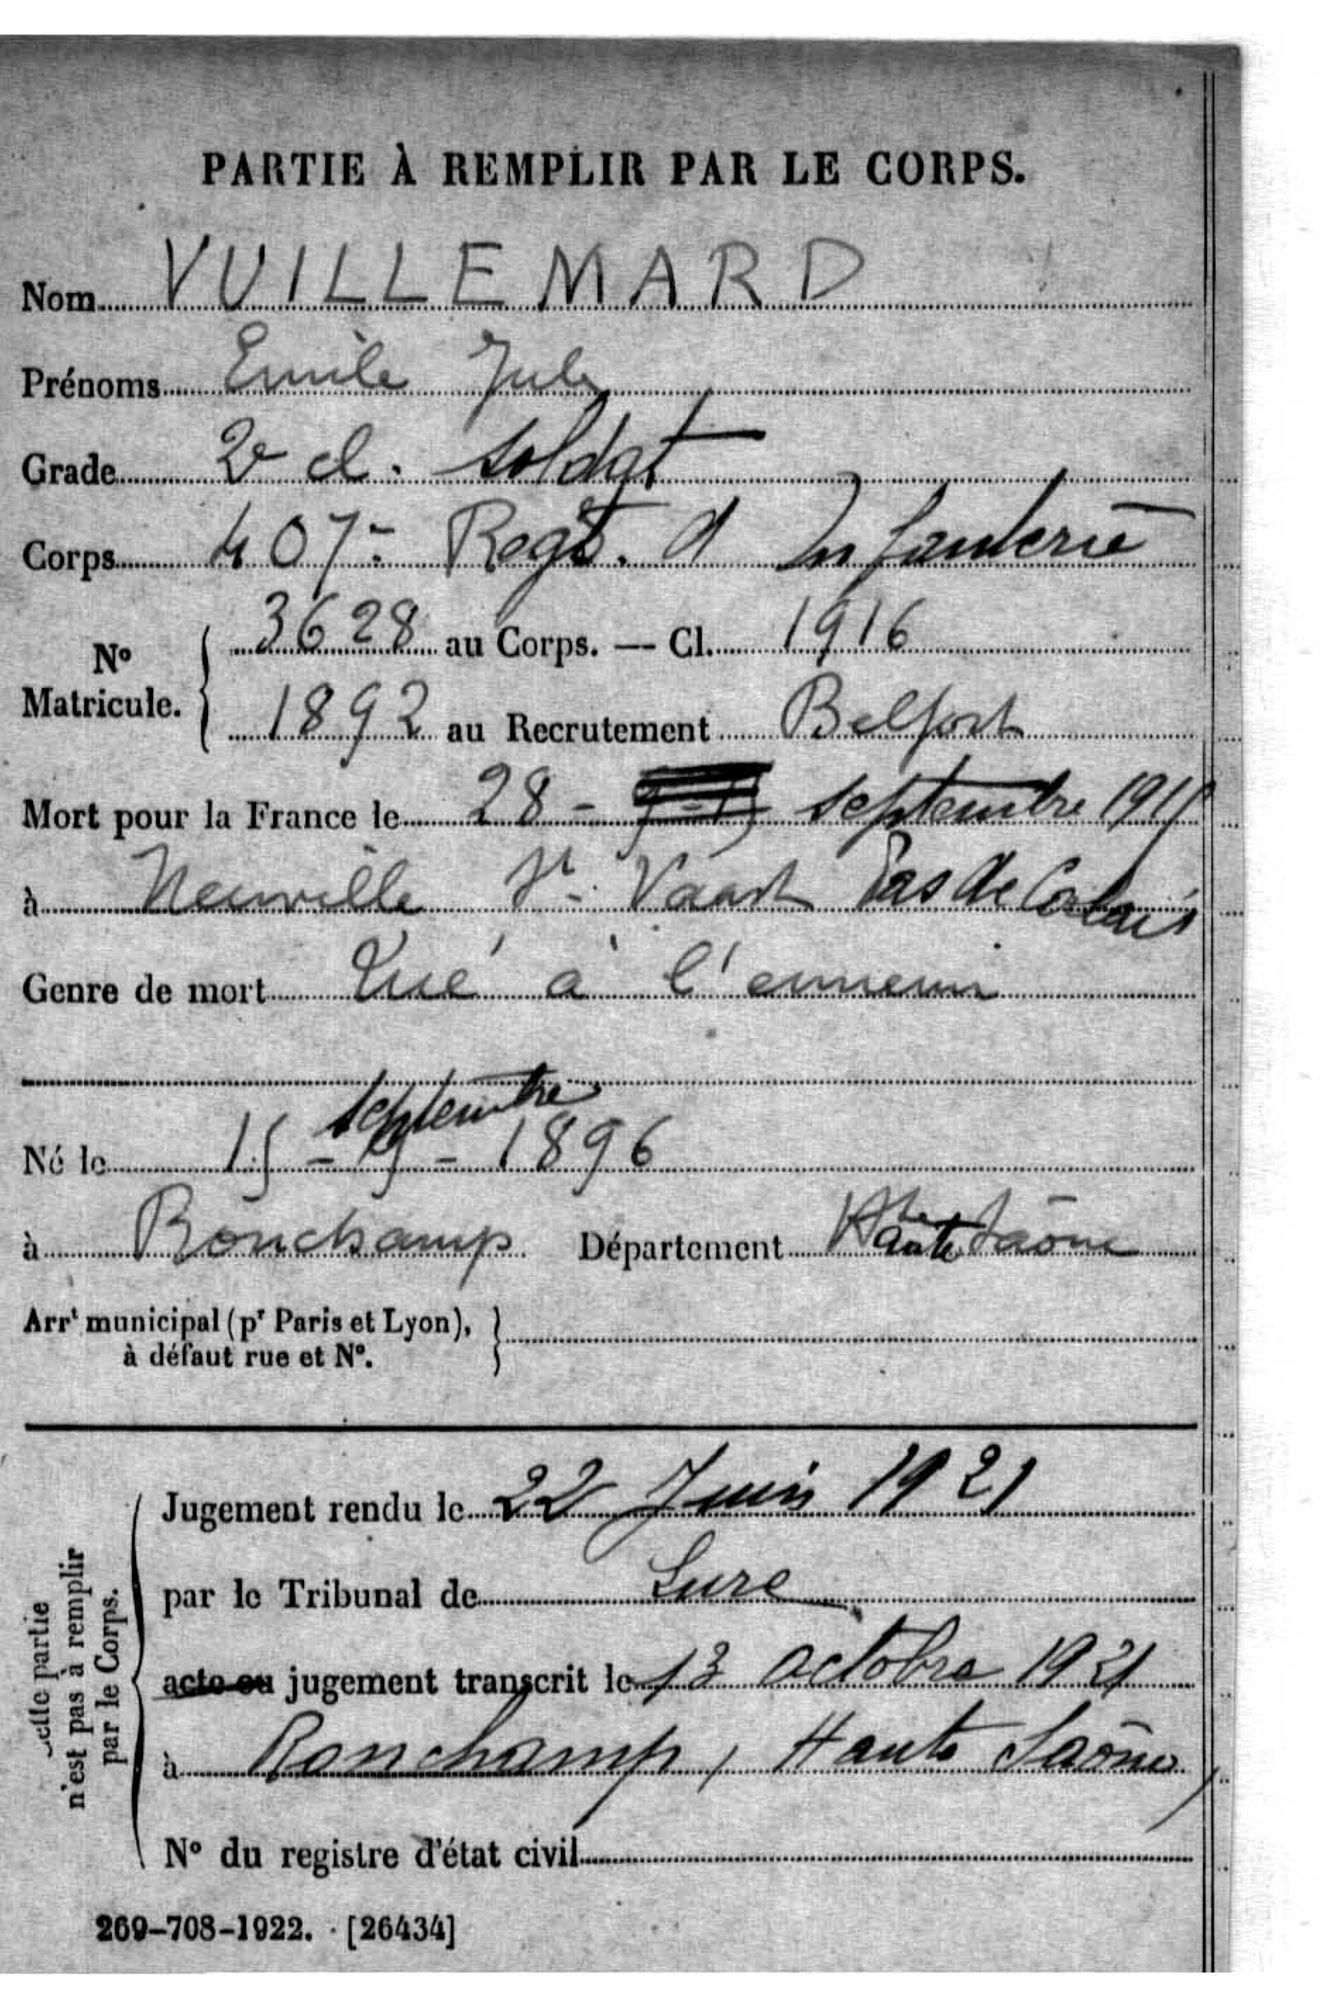 PARTIE À REMPLIR PAR LE CORPS.
Nom VUILLEMARD
Prénoms Emile Jules
Grade 2e cl. soldat
Corps 407e Regt. d'Infanterie
N° Matricule. 3628 au Corps. — Cl. 1916
1892 au Recrutement Belfort
Mort pour la France le 28 - septembre 1915
à Neuville St. Vaast Pas de Calais
Genre de mort Tué à l'ennemi
septembre
Né le 15 - 9 - 1896
à Ronchamp Département Hte Haute Saône
Arrt municipal (pr Paris et Lyon),
à défaut rue et N°.
Jugement rendu le 22 Juin 1921
par le Tribunal de Lure
acte ou jugement transcrit le 13 octobre 1921
à Ronchamp, Haute Saône
N° du registre d'état civil
Cette partie
n'est pas à remplir
par le Corps.
269-708-1922. [26434]